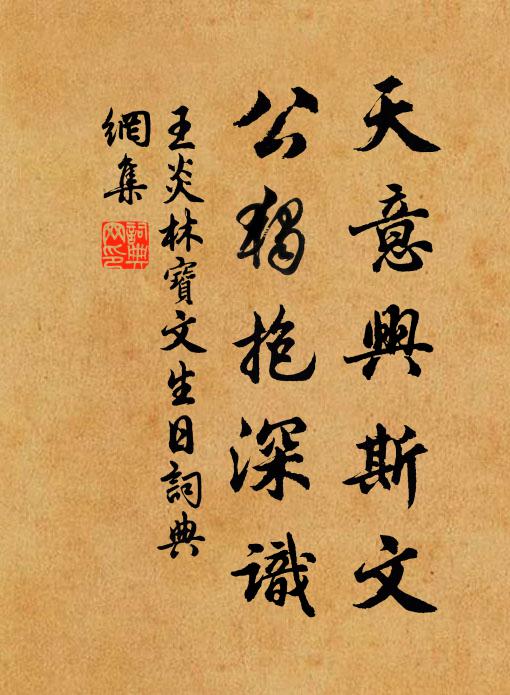 天意興斯文
公獨抱深識
王炎林寶文生日詞典
網集
詞典
網印